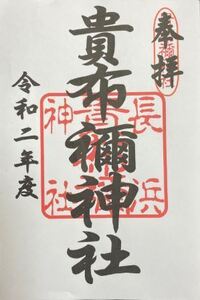 奉拝
貴布禰神社
令和二年度
長浜
神社